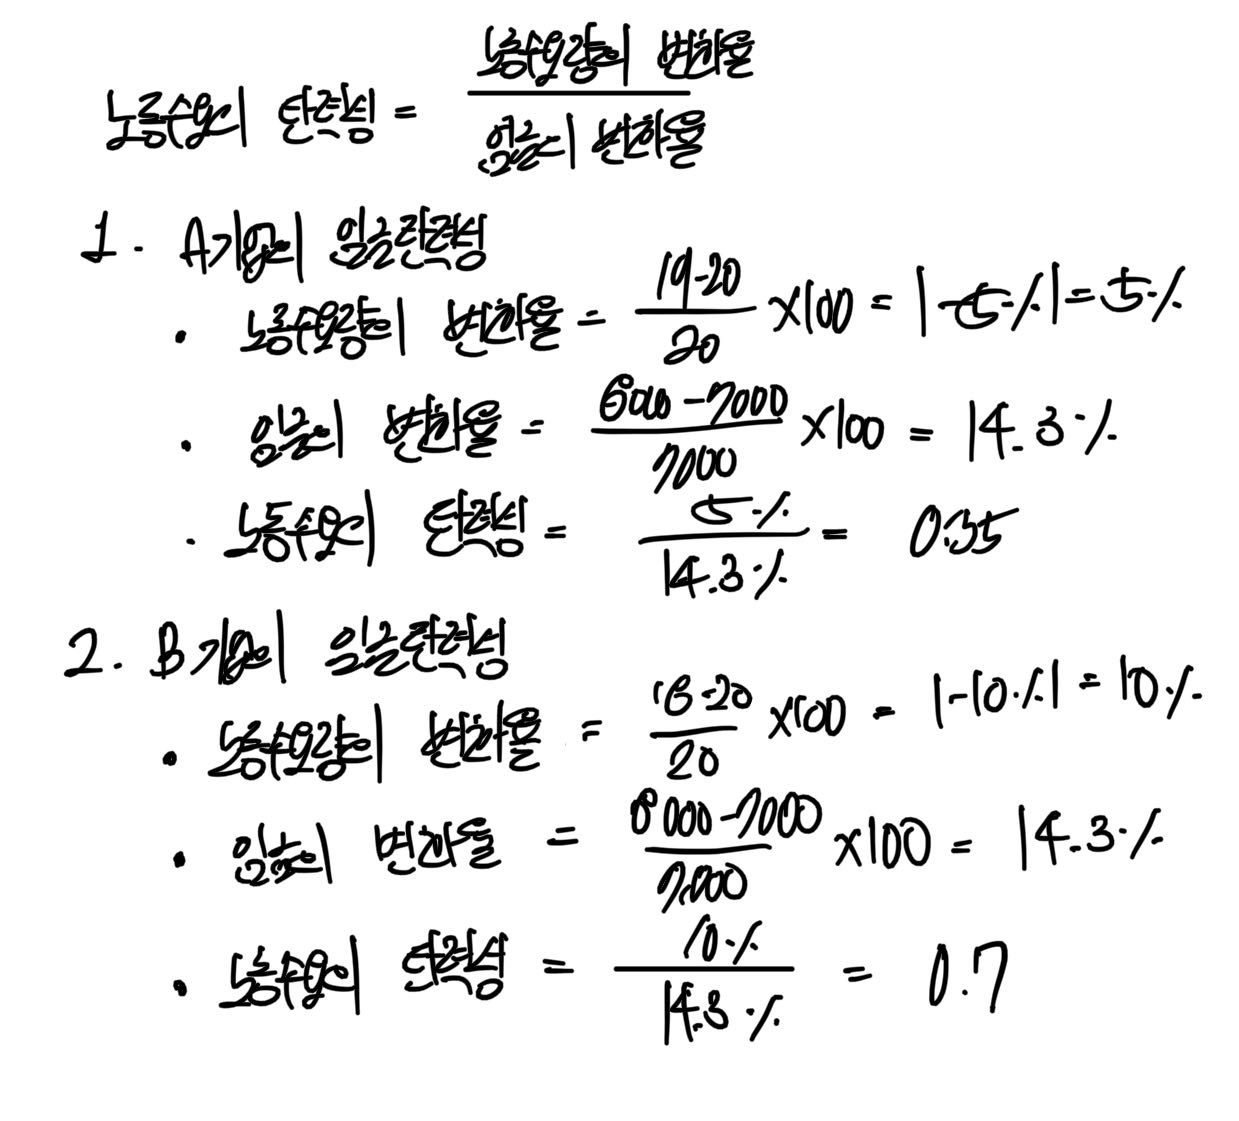 노동수요의 탄력성 = 노동수요량의 변화율 / 임금의 변화율
1. A기업의 임금탄력성
• 노동수요량의 변화율 = 19-20 / 20 ×100 = |-5%| = 5%
• 임금의 변화율 = 8000-7000 / 7000 ×100 = 14.3%
• 노동수요의 탄력성 = 5% / 14.3% = 0.35
2. B기업의 임금탄력성
• 노동수요량의 변화율 = 18-20 / 20 ×100 = |-10%| = 10%
• 임금의 변화율 = 8000-7000 / 7,000 ×100 = 14.3%
• 노동수요의 탄력성 = 10% / 14.3% = 0.7